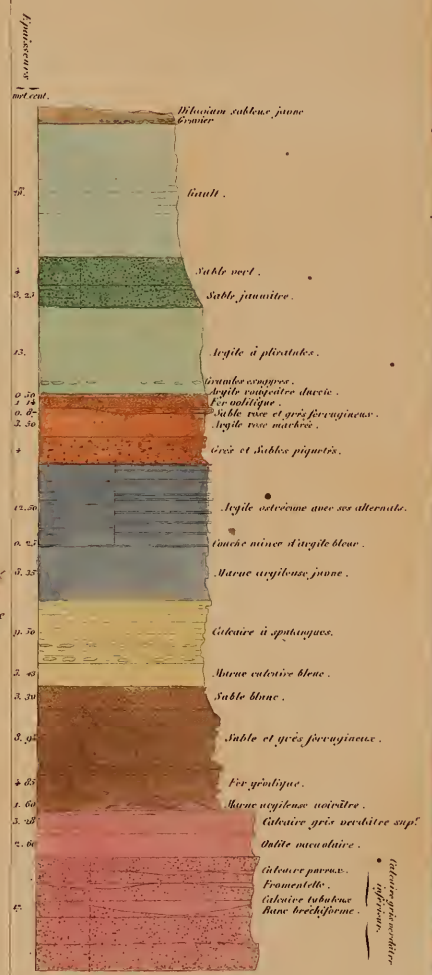 Epaisseurs
met. cent.
Diluvium sableux jaune
Gravier
Gault.
4 Sable vert.
3. 25 Sable jaunâtre.
13. Argile à plicatules.
Grandes exogyres.
0 50 Argile rougeâtre durcie.
1 14 Fer oolitique.
Sable rose et grès ferrugineux.
3. 50 Argile rose marbrée.
4 Grès et Sables piquetés.
12. 50 Argile ostréenne avec ses alternats.
0. 25 Couche mince d'argile bleue.
3. 35 Marne argileuse jaune.
9. 50 Calcaire à spatangues.
3. 43 Marne calcaire bleue.
3. 30 Sable blanc.
Sable et grès ferrugineux.
4 85 Fer géodique.
1. 60 Marne argileuse noirâtre.
3. 28 Calcaire gris verdâtre supr
2. 60 Oolite vacuolaire.
Calcaire poreux.
Fromentelle.
Calcaire tubuleux
Banc bréchiforme.
Calcaire gris verdâtre
inférieur.